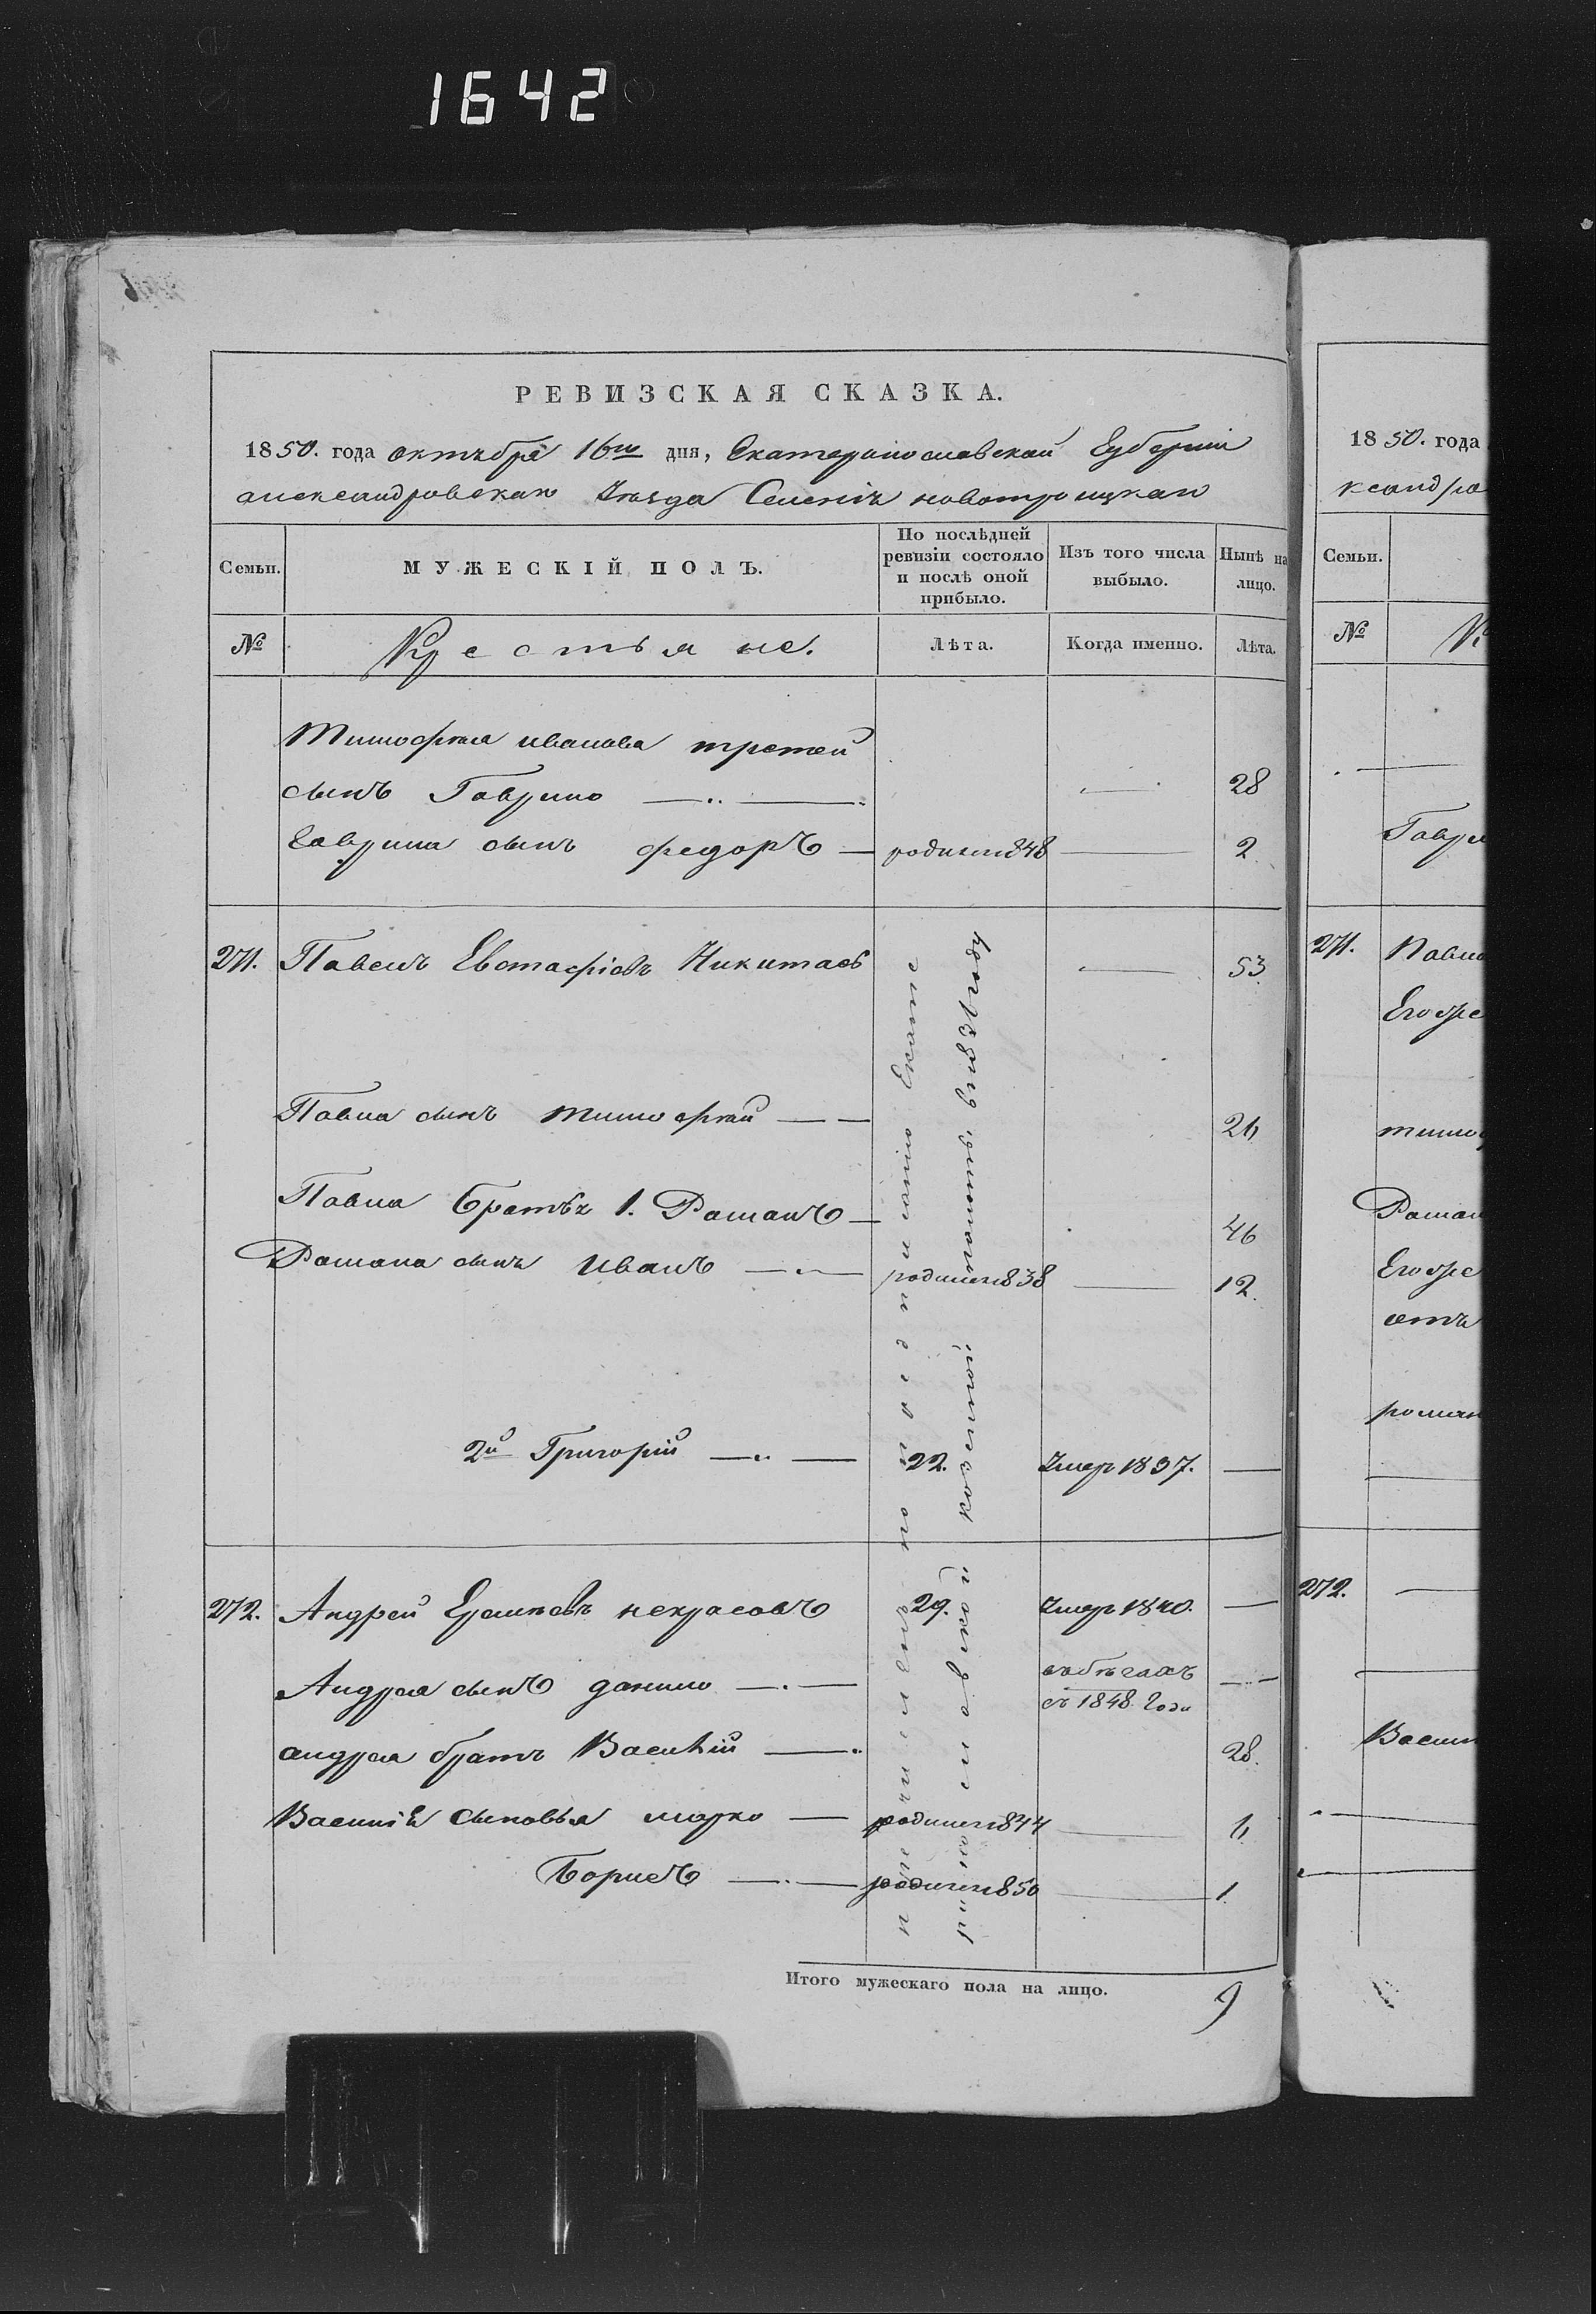 1642
РЕВИЗСКАЯ СКАЗКА.
1850. года октября 16го дня, Екатеринославской Губерніи
александровскаго Уезда Селенія новотроицкаго
Семьи.
МУЖЕСКІЙ ПОЛЪ.
По послѣдней ревизіи состояло и послѣ оной прибыло.
Изъ того числа выбыло.
Нынѣ на лицо.
№
Крестьяне.
Лѣта.
Когда именно.
Лѣта.
Тимофея иванова третей
сынъ Гаврило 28
Гаврила сынъ федоръ родился 1848 2
271. Павелъ Евстафіевъ Никитаев 53
Павла сынъ тимофей 26
Павла братья 1. Романъ 46
Романа сынъ иванъ родился 1838 12.
2й Григорій 22. Умер 1837.
272. Андрей Ермаковъ некрасовъ 29. Умер 1840.
Андрея сынъ данило в бѣгахъ
съ 1848 Года
андрея братъ Василій 28.
Василія сыновья марко родился 1844 6
Борисъ родился 1850 1
причисленъ по предписанію Екате
ринославской казенной палаты, в 1837 году
Итого мужескаго пола на лицо. 9
1850. года
ксандро
Семьи.
№
Кр
Гаври
271. Павла
Его же
тимоф
Роман
Его же
отъ
роман
272.
Васил